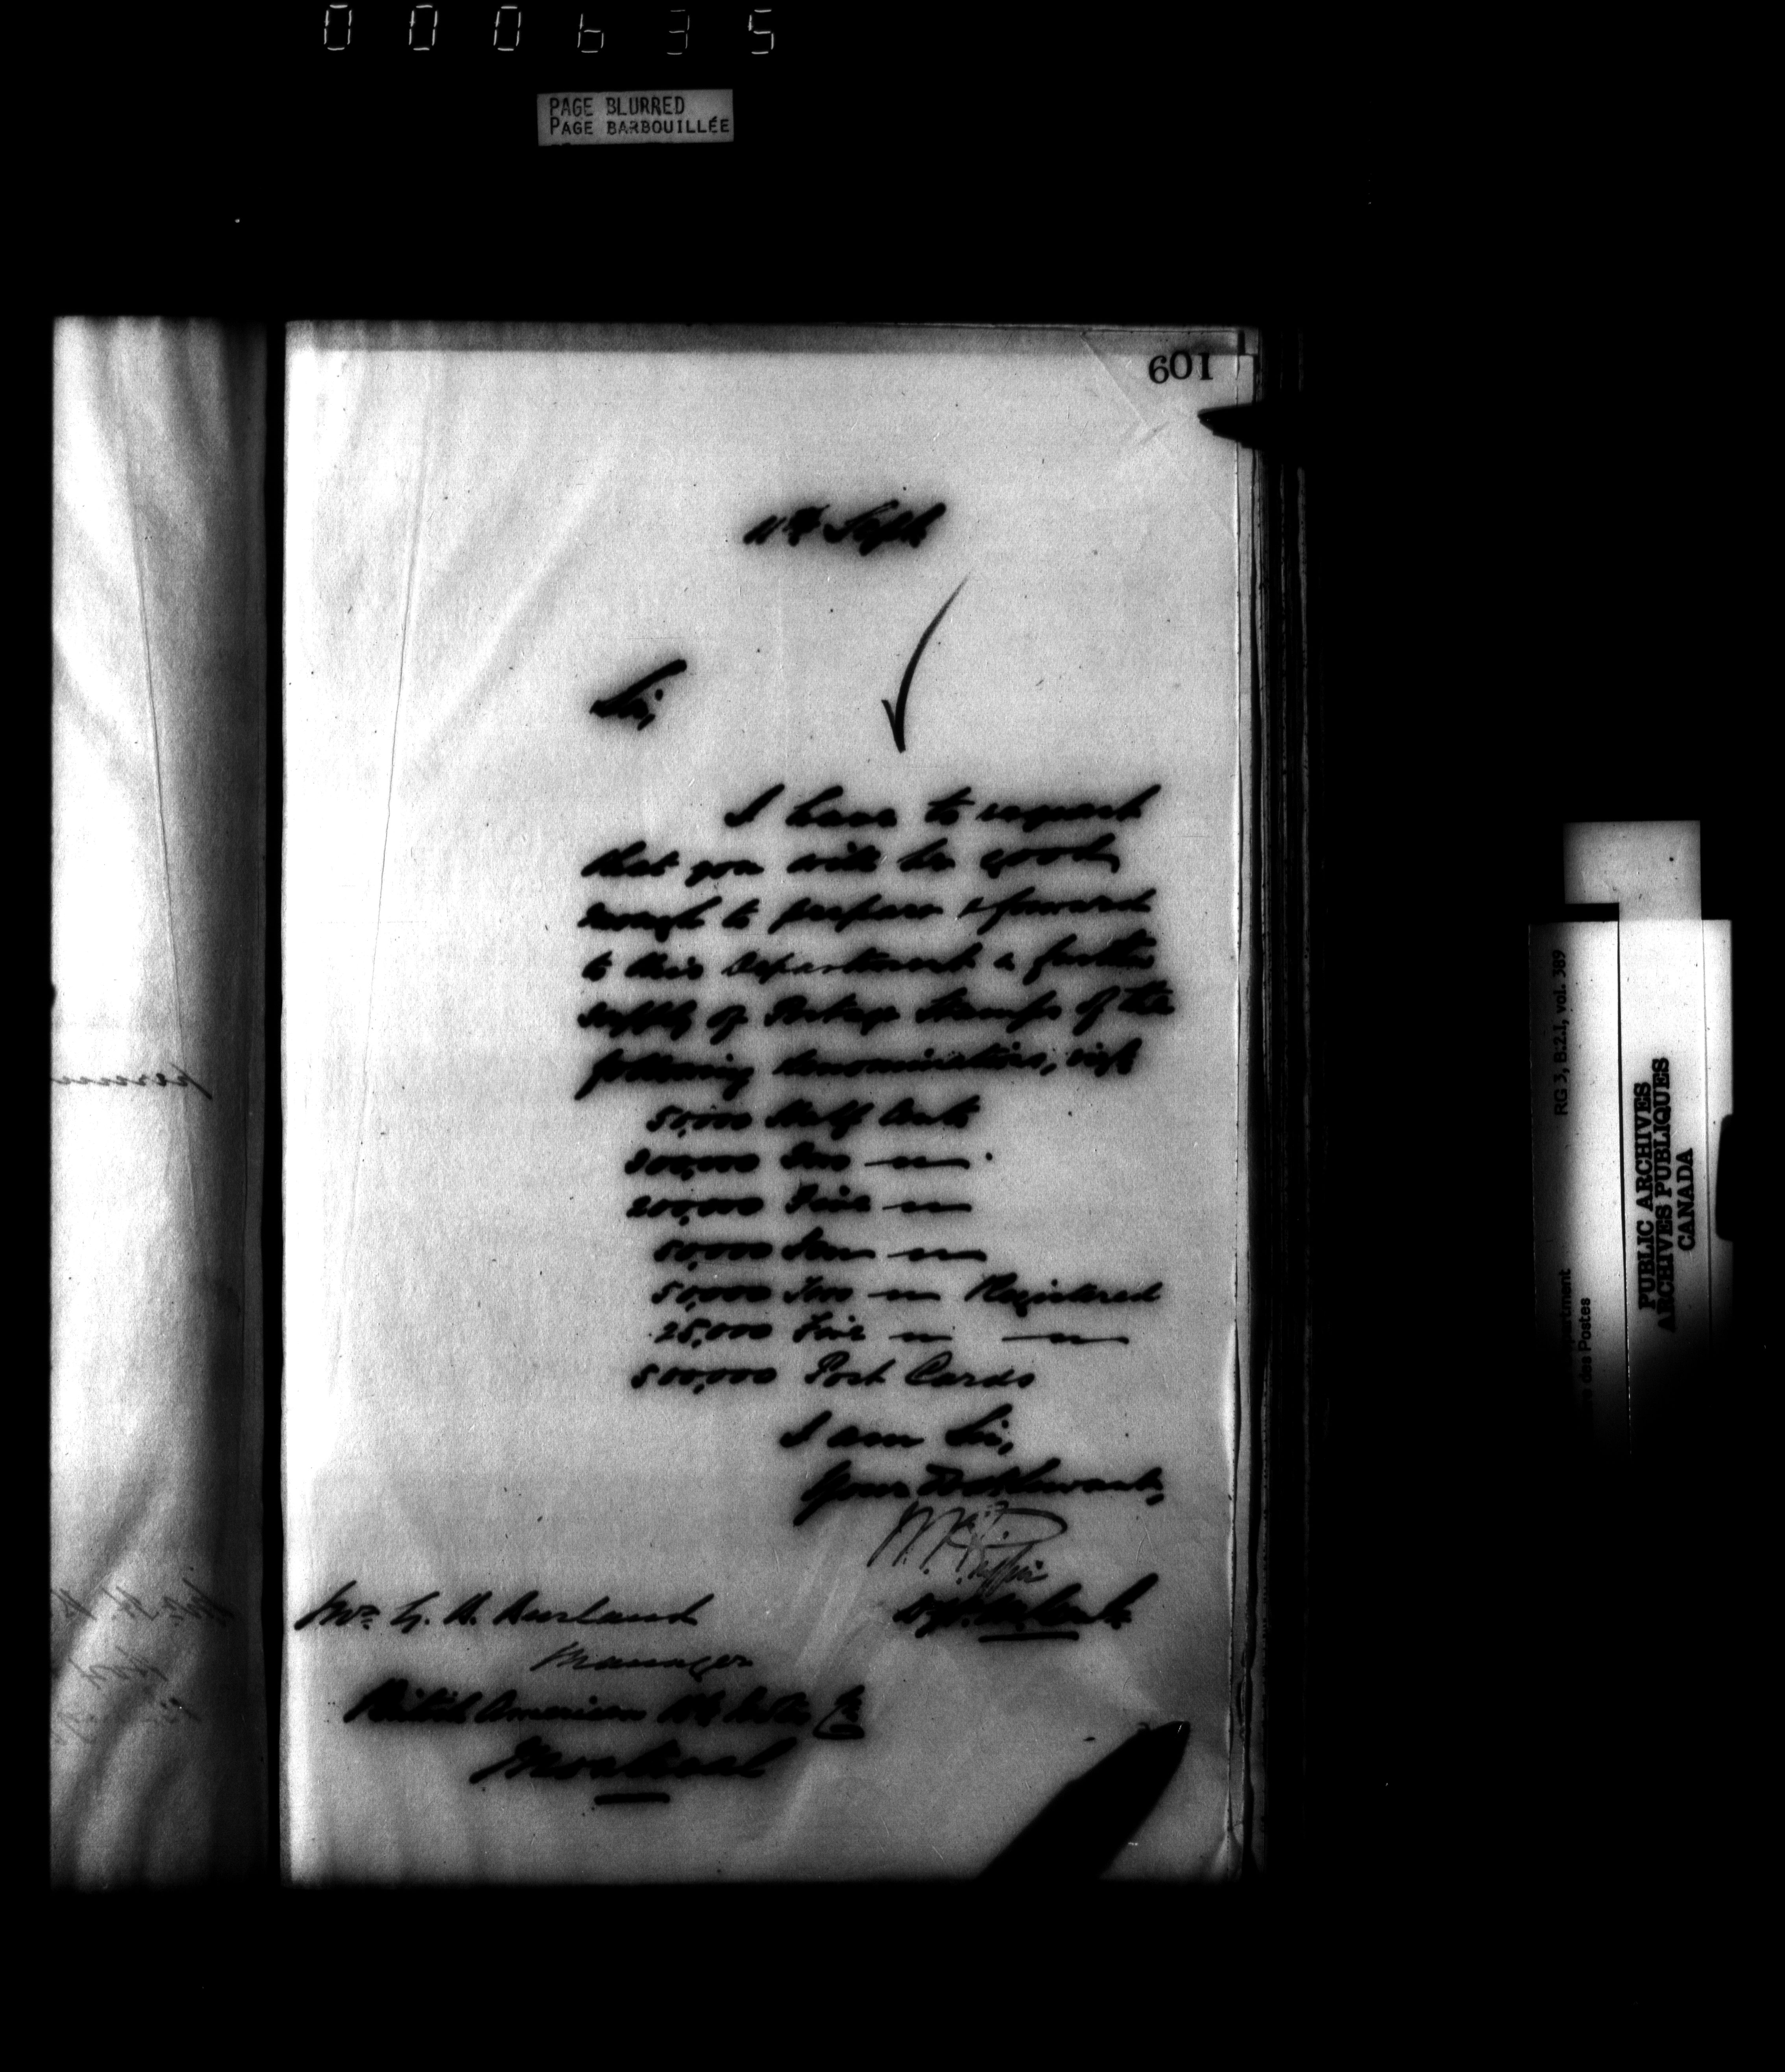 000635
PAGE BLURRED
PAGE BARBOUILLÉE
601
11th Sept
Sir,
I have to request
that you will be good
enough to prepare & forward
to this Department a further
supply of Postage Stamps of the
following denominations, vizt
50,000 Half Cents
300,000 Two —"—
200,000 Five —"—
50,000 Ten —"—
50,000 Two —"— Registered
25,000 Five —"— —"—
500,000 Post Cards
I am Sir,
Your Servant,
Mr G. B. Burland
Manager
British American Bk Note Co
Montreal
RG 3, B.2.1, vol. 389
des Postes
PUBLIC ARCHIVES
ARCHIVES PUBLIQUES
CANADA